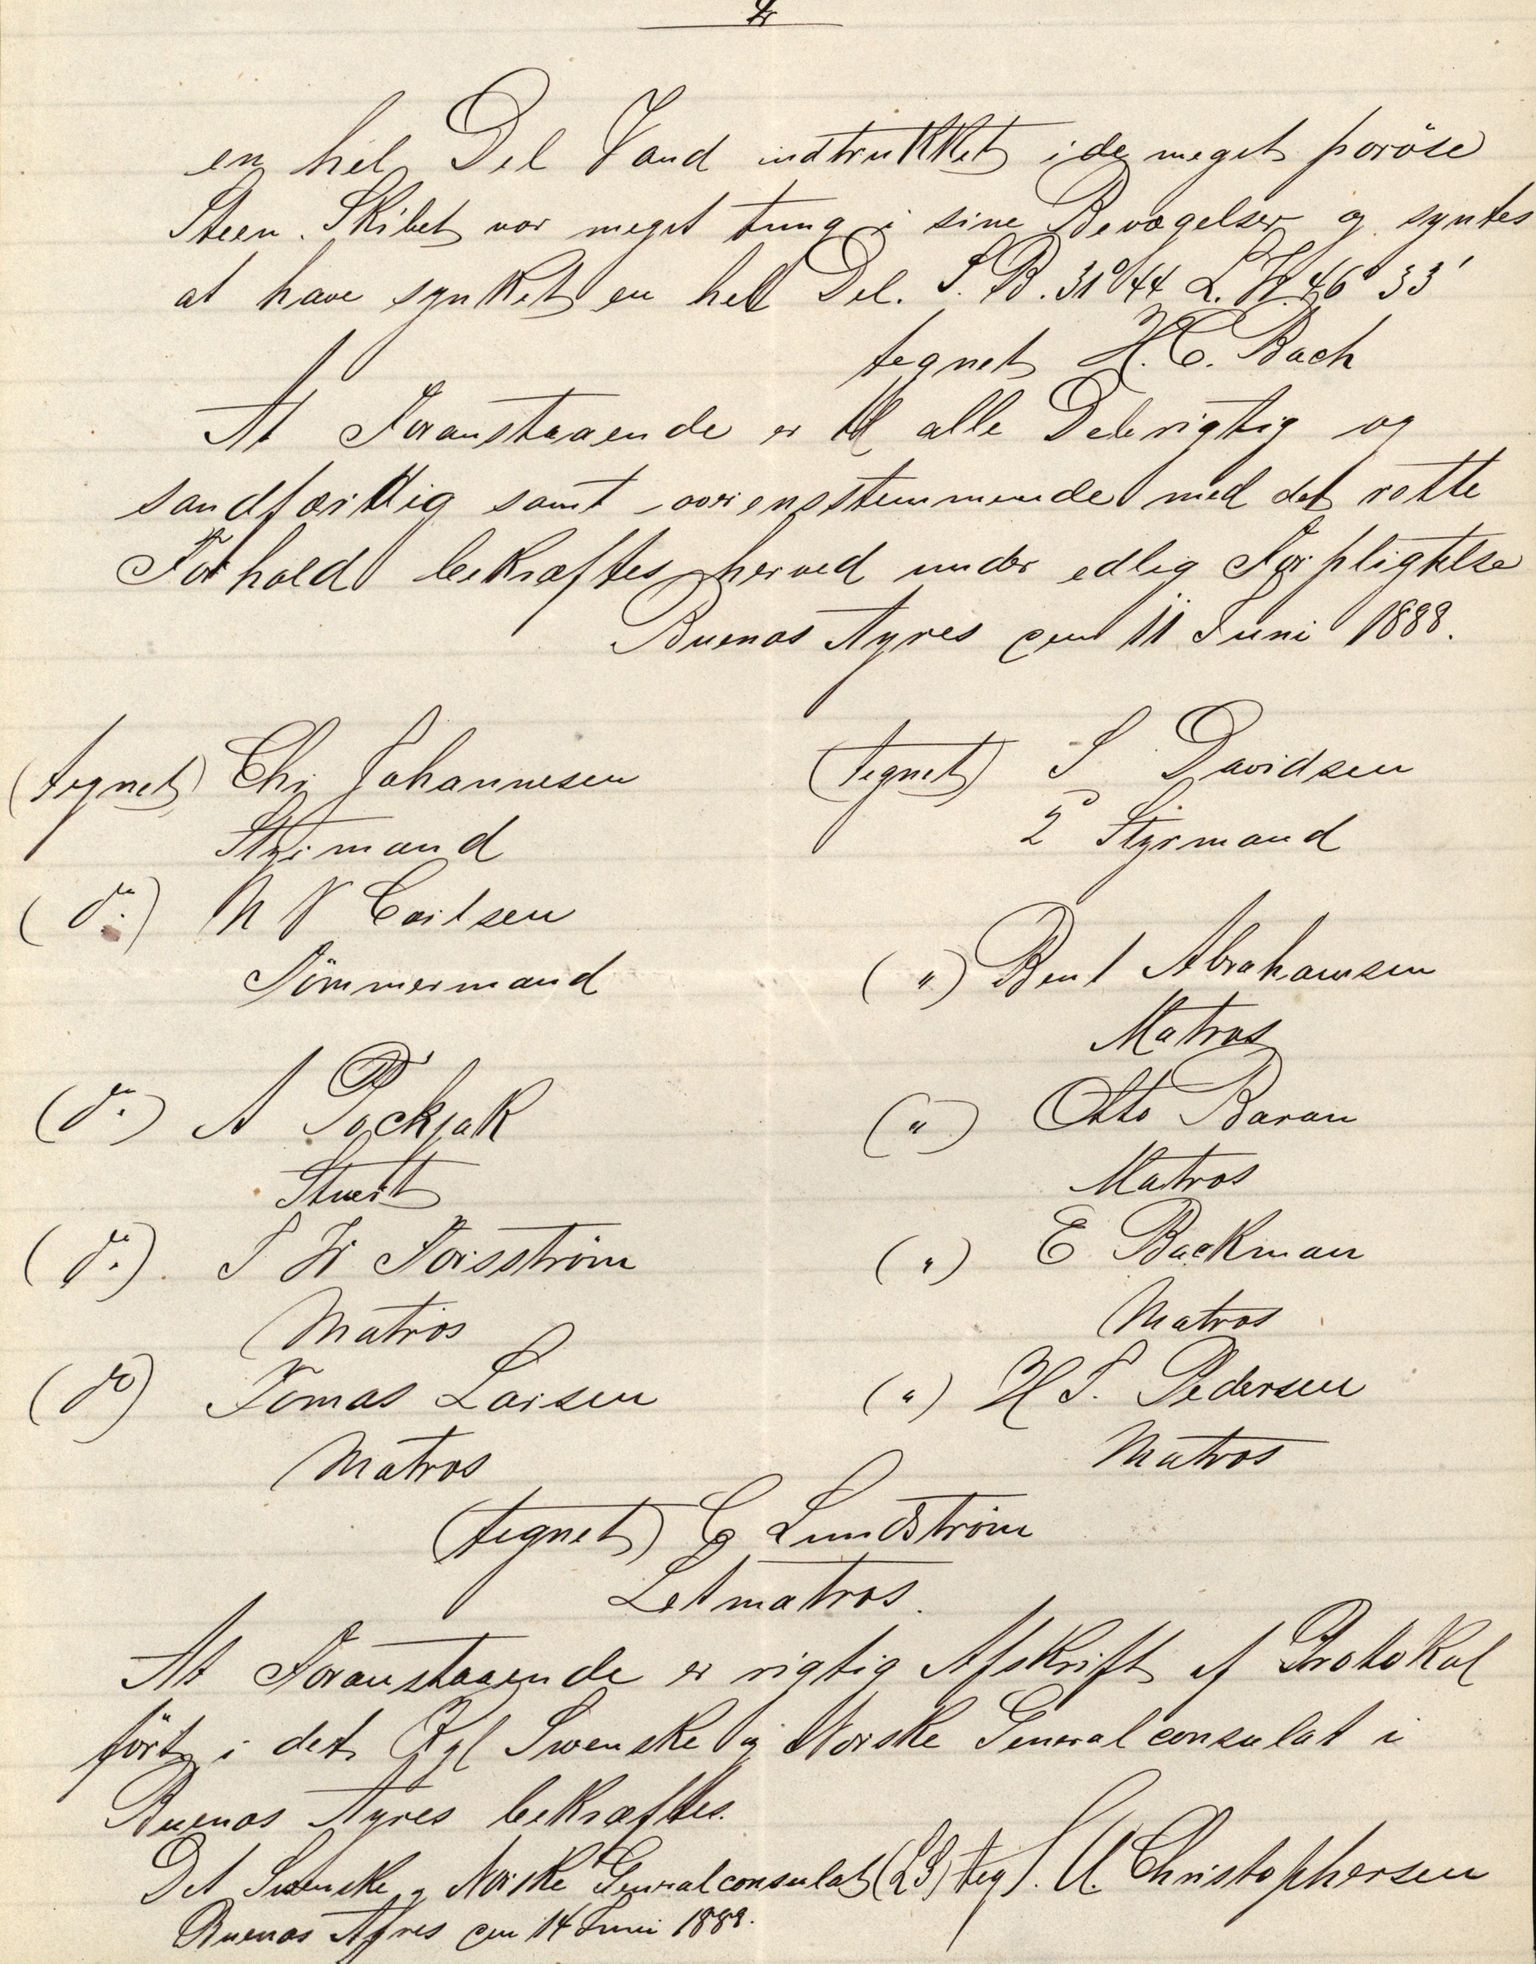 4
en hel Del Vand indtrukket i de meget poröse
Steen. Skibet var meget tung i sine Bevægelser og syntes
at have synket en hel Del. S. B. 31°44 L. W. 46° 33'
tegnet H. C. Bach
At Foranstaaende er til alle Dele rigtig og
sandfærdig samt overensstemmende med det rette
Forhold bekræftes herved under edlig Forpligtelse
Buenos Ayres den 11 Juni 1888.
(tegnet) Chr Johannesen (tegnet) S Davidsen
Styrmand 2 Styrmand
(do.) N N Carlsen
Tömmermand (") Bent Abrahamsen
Matros
(do.) A Pockjak (") Otto Baran
Stuert Matros
(do.) S W Forsström (") E Backman
Matros Matros
(do) Tomas Larsen (") H S. Pedersen
Matros Matros
(tegnet) C Lundström
Letmatros.
At Foranstaaende er rigtig Afskrift af Protokol
fört i det Kgl Swenske og Norske Generalconsulat i
Buenos Ayres bekræftes.
Det Swenske og Norske Generalconsulat (LS) teg S. A. Christophersen
Buenos Ayres den 14 Juni 1888.